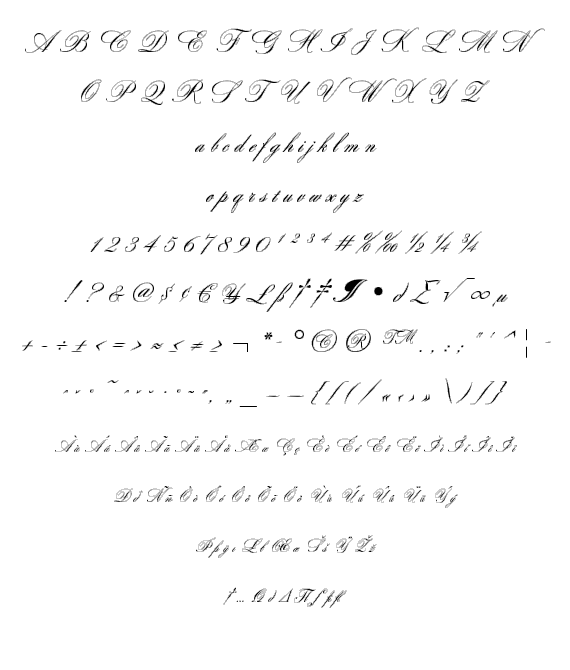 A B C D E F G H I J K L M N
O P Q R S T U V W X Y Z
a b c d e f g h i j k l m n
o p q r s t u v w x y z
1 2 3 4 5 6 7 8 9 0 ¹ ² ³ ⁴ # % ‰ ½ ¼ ¾
! ? & @ $ ¢ € ¥ £ ß † ‡ ¶ • ∂ ∑ √ ∞ µ
+ - ÷ ± < = > ≈ ≤ ≠ ≥ ¬ * - ° © ® ™ . , : ; " ' ^ ¦ -
„ _ – — { [ ( / « ‹ › » \ ) ] }
À à Á á Â â Ã ã Ä ä Å å Æ æ Ç ç È è É é Ê ê Ë ë Ì ì Í í Î î Ï ï
Ð ð Ñ ñ Ò ò Ó ó Ô ô Õ õ Ö ö Ù ù Ú ú Û û Ü ü Ý ý
Þ þ ÿ ı Ł ł Œ œ Š š Ÿ Ž ž
† … Ω ∂ ∆ Π ∫ fi fl